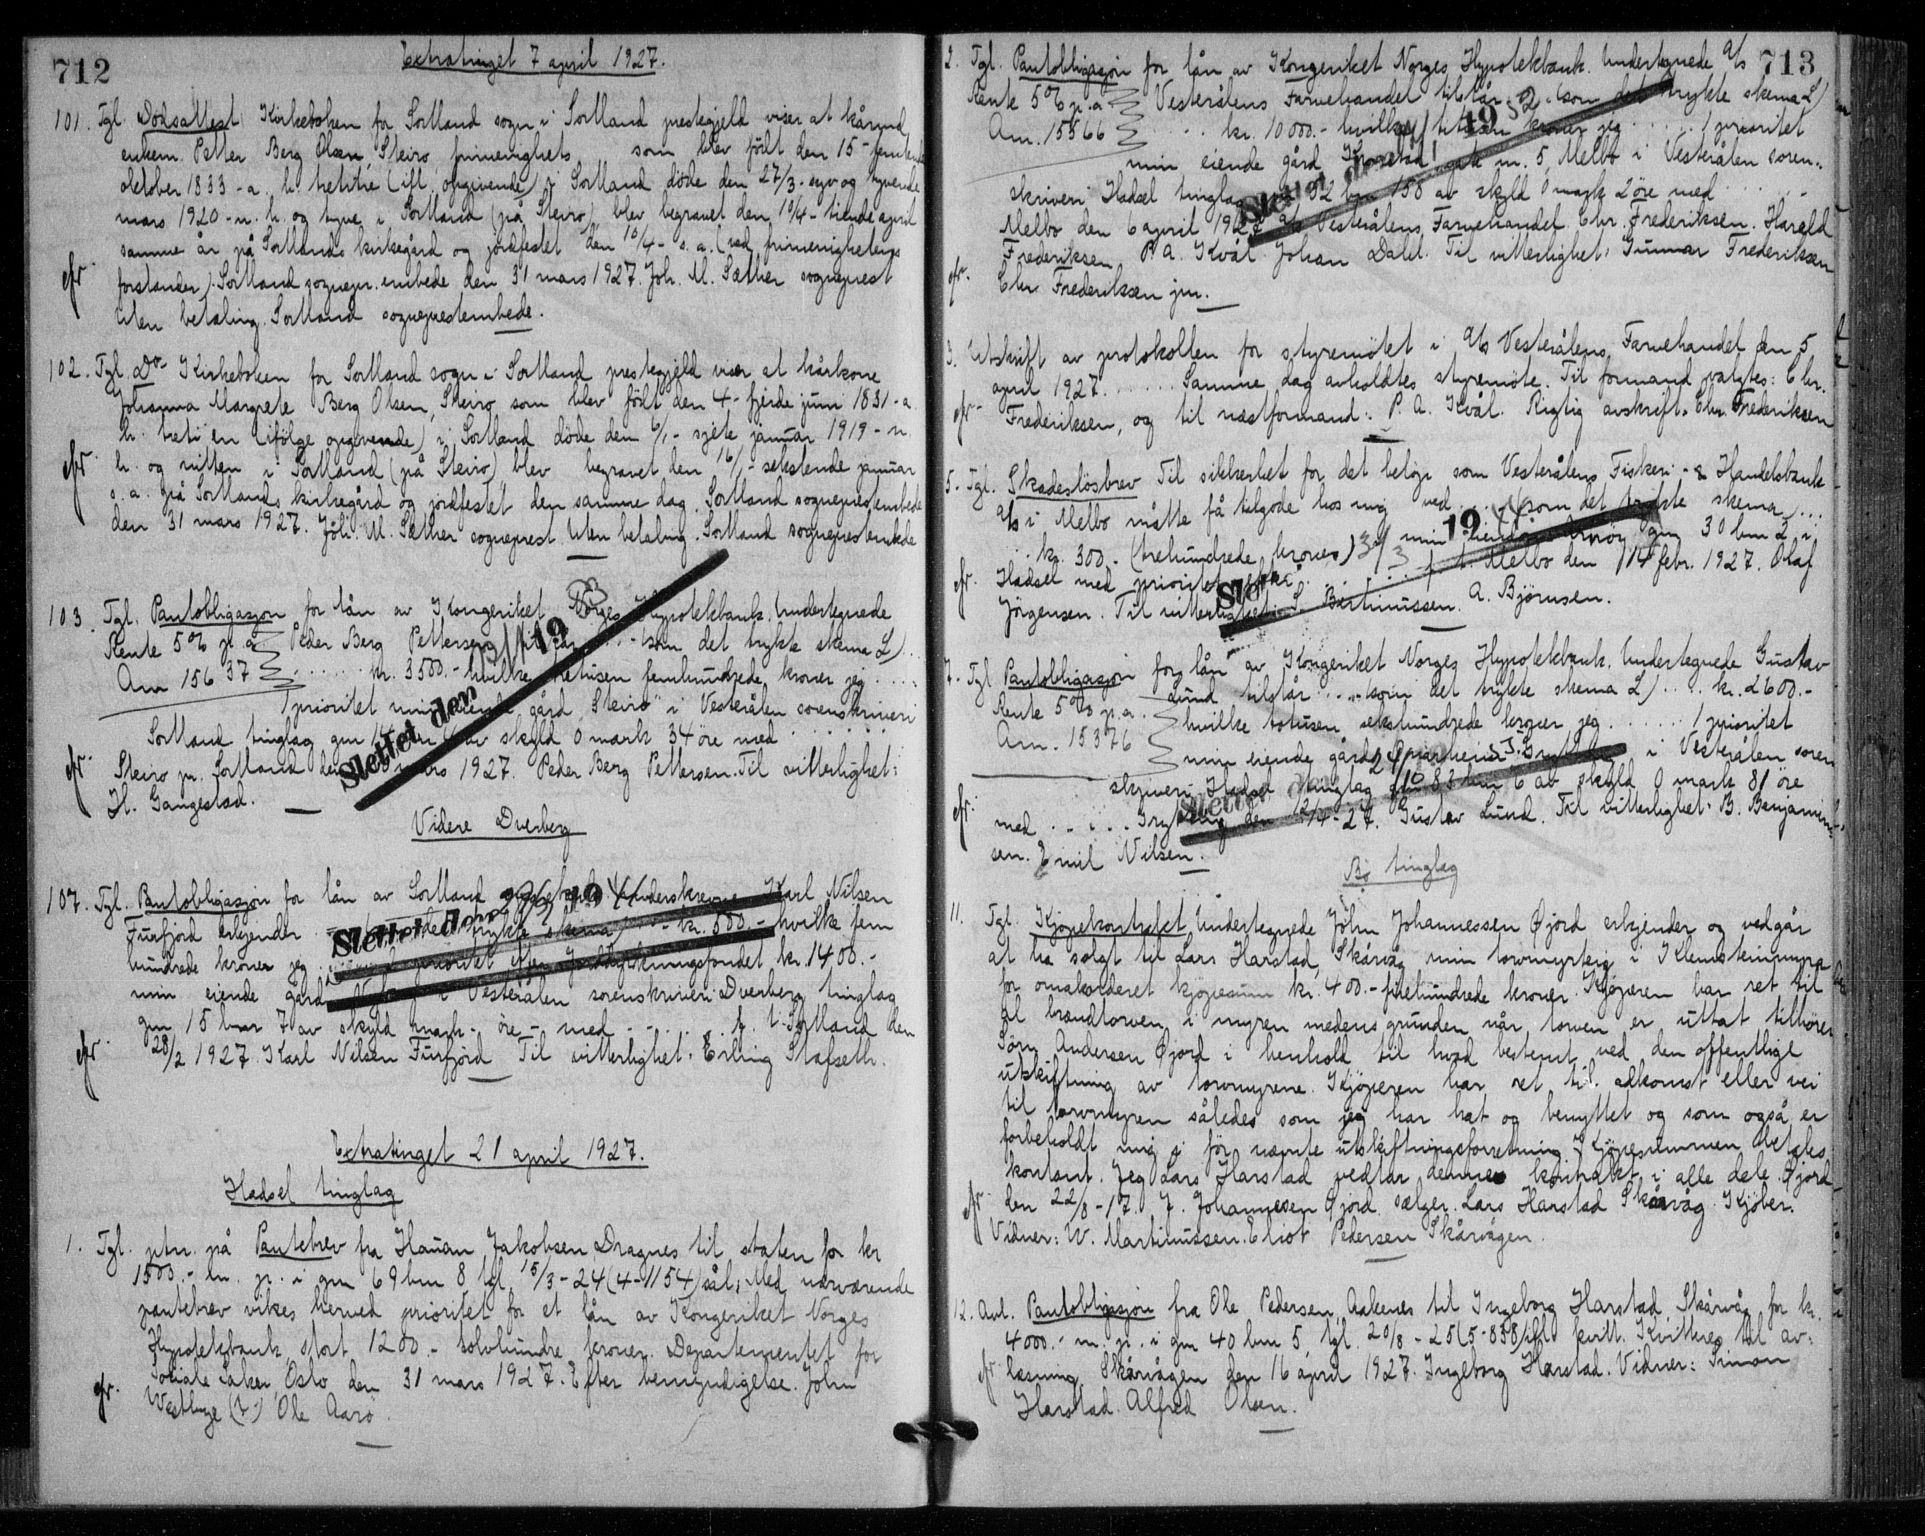 712
Extratinget 7 april 1927.
101. Tgl. Dödsattest Kirkeboken for Sortland sogn i Sortland prestegjeld viser at kårmd
enkem. Petter Berg Olsen, Steiro frimenighets som blev födt den 15-femtende
oktober 1833 - a. h. tretitre (ifl. opgivende) i Sortland döde den 27/3 - syv og tyvende
mars 1920 - n. h. og tyve i Sortland (på Steiro) blev begravet den 10/4 - tiende april
samme år på Sortlands kirkegård og jordfestet den 10/4 - s. a. (ved frimenighetens
forstander). Sortland sognepr. embede den 31 mars 1927. Joh. M. Sæther sogneprest
Uten betaling. Sortland sogneprestembede.
102. Tgl. Do Kirkeboken for Sortland sogn i Sortland prestegjeld viser at kårkone
Johanna Margrete Berg Olsen, Steiro som blev födt den 4-fjerde juni 1831 - a.
h. treti en (ifölge opgivende) i Sortland döde den 6/1 - sjette januar 1919 - n.
h. og nitten i Sortland (på Steiro) blev begravet den 16/1 - sekstende januar
s. a. på Sortlands kirkegård og jordfestet den samme dag. Sortland sogneprestembede
den 31 mars 1927. Joh. M. Sæther sogneprest. Uten betaling. Sortland sogneprestembede
103. Tgl. Pantobligasjon for lån av Kongeriket Norges Hypotekbank. Undertegnede
Rente 5% p. a. Peder Berg Pettersen tilstår .... (som det trykte skema L)...
Am 15637 ...... kr. 3500.- hvilke tretusen femhundrede kroner jeg ....
1 prioritet min eiende gård Steirö i Vesterålen sorenskriveri
Sortland tinglag gnr 14 av skyld 0 mark 34 öre med .......
Steiro pr. Sortland den mars 1927. Peder Berg Pettersen. Til vitterlighet:
H. Gangestad.
Slettet den 19
Videre Dverberg
107. Tgl. Pantobligasjon for lån av Sortland Underskrevne Karl Nilsen
Furfjord erkjender trykte skema - kr. 500.- hvilke fem
hundrede kroner jeg prioritet efter Jorddyrkningsfondet kr. 1400.-
min eiende gård i Vesterålen sorenskriveri Dverberg tinglag
gnr 15 bnr 7 av skyld mark - öre - med ...... p. t. Sortland den
28/2 1927. Karl Nilsen Furfjord. Til vitterlighet: Erling Stafseth.
Slettet den 19
Extratinget 21 april 1927.
Hadsel tinglag
1. Tgl. ptn. på Pantebrev fra Hauan Jakobsen Dragnes til staten for kr
1500.- m. p. i gnr 69 bnr 8 tgl. 15/3-24 (4-1154) sål: Med nærværende
pantebrev vikes herved prioritet for et lån av Kongeriket Norges
Hypotekbank, stort 1200.- tolvhundre kroner. Departementet for
Sociale Saker, Oslo den 31 mars 1927. Efter bemyndigelse. John
Ole Aarö.
713
2. Tgl. Pantobligasjon for lån av Kongeriket Norges Hypotekbank. Undertegnede A/s
Rente 5% p. a. Vesterålens Farvehandel tilstår (som det trykte skema L)
Am. 15566 .... kr. 10000.- hvilke titusen kroner jeg ..... 1 prioritet
min eiende gård m. 5, Melbo i Vesterålen soren-
skriveri Hadsel tinglag 52 bnr 158 av skyld 0 mark 2 öre med
Melbo den 6 april 1927 A/s Vesterålens Farvehandel. Chr. Frederiksen. Harald
Frederiksen P. A. Kvål. Johan Dahl. Til vitterlighet: Gunnar Frederiksen
Chr. Frederiksen jun.
Slettet den 19
3. Utskrift av protokollen for styremötet i A/s Vesterålens Farvehandel den 5
april 1927. ..... Samme dag avholdtes styremöte. Til formand valgtes: Chr.
Frederiksen, og til næstformand: P. A. Kvål. Rigtig avskrift. Chr. Frederiksen
5. Tgl. Skadeslösbrev Til sikkerhet for det belöp som Vesterålens Fiskeri- & Handelsbank
A/s i Melbo måtte få tilgode hos mig ved .. (som det trykte skema) ...
.. kr. 300.- (trehundrede kroner) min gnr 30 bnr 2 i
Hadsel med prioritet efter ..... p. t. Melbo den 14 febr. 1927. Olaf
Jörgensen. Til vitterlighet: S. Bertinussen. A. Björnsen.
Slettet 19
7. Tgl. Pantobligasjon for lån av Kongeriket Norges Hypotekbank. Undertegnede Gustav
Rente 5% p. a. Lund tilstår .... (som det trykte skema L) .... kr. 2600.-
Am. 15376 hvilke totusen sekshundrede kroner jeg ....... 1 prioritet
min eiende gård i Vesterålen soren
skriveri Hadsel tinglag gnr 82 bnr 6 av skyld 0 mark 81 öre
med ...... den 12/4-27. Gustav Lund. Til vitterlighet: B. Benjamin-
sen. Emil Nilsen.
Slettet
Bö tinglag
11. Tgl. Kjöpekontrakt Undertegnede John Johannessen Öjord erkjender og vedgår
at ha solgt til Lars Harstad, Skårvåg min torvmyrteig i Klemsteinmyra
for omakorderet kjöpesum kr. 400.- firehundrede kroner. Kjöperen har ret til
al brandtorven i myren medens grunden når torven er uttat tilhörer
Sörn Andersen Öjord i henhold til hvad bestemt ved den offentlige
utskiftning av torvmyrene. Kjöperen har ret til adkomst eller vei
til torvmyren således som jeg har hat og benyttet og som også er
forbeholdt mig i för nævnte utskiftningsforretning. Kjöpesummen betales
kontant. Jeg Lars Harstad vedtar denne kontrakt i alle dele. Öjord
den 22/8-17. J. Johannesen Öjord sælger. Lars Harstad Skårvåg. Kjöber.
Vidner: W. Martinussen. Eliot Pedersen Skårvågen.
12. Avl. Pantobligasjon fra Ole Pedersen, Aakenes til Ingeborg Harstad, Skårvåg for kr.
4000.- m. p. i gnr 40 bnr 5, tgl. 20/8-25 (5-838) kvitt. Kvitteres til av-
læsning. Skårvågen den 16 april 1927. Ingeborg Harstad. Vidner: Simon
Harstad. Alfred Olsen.